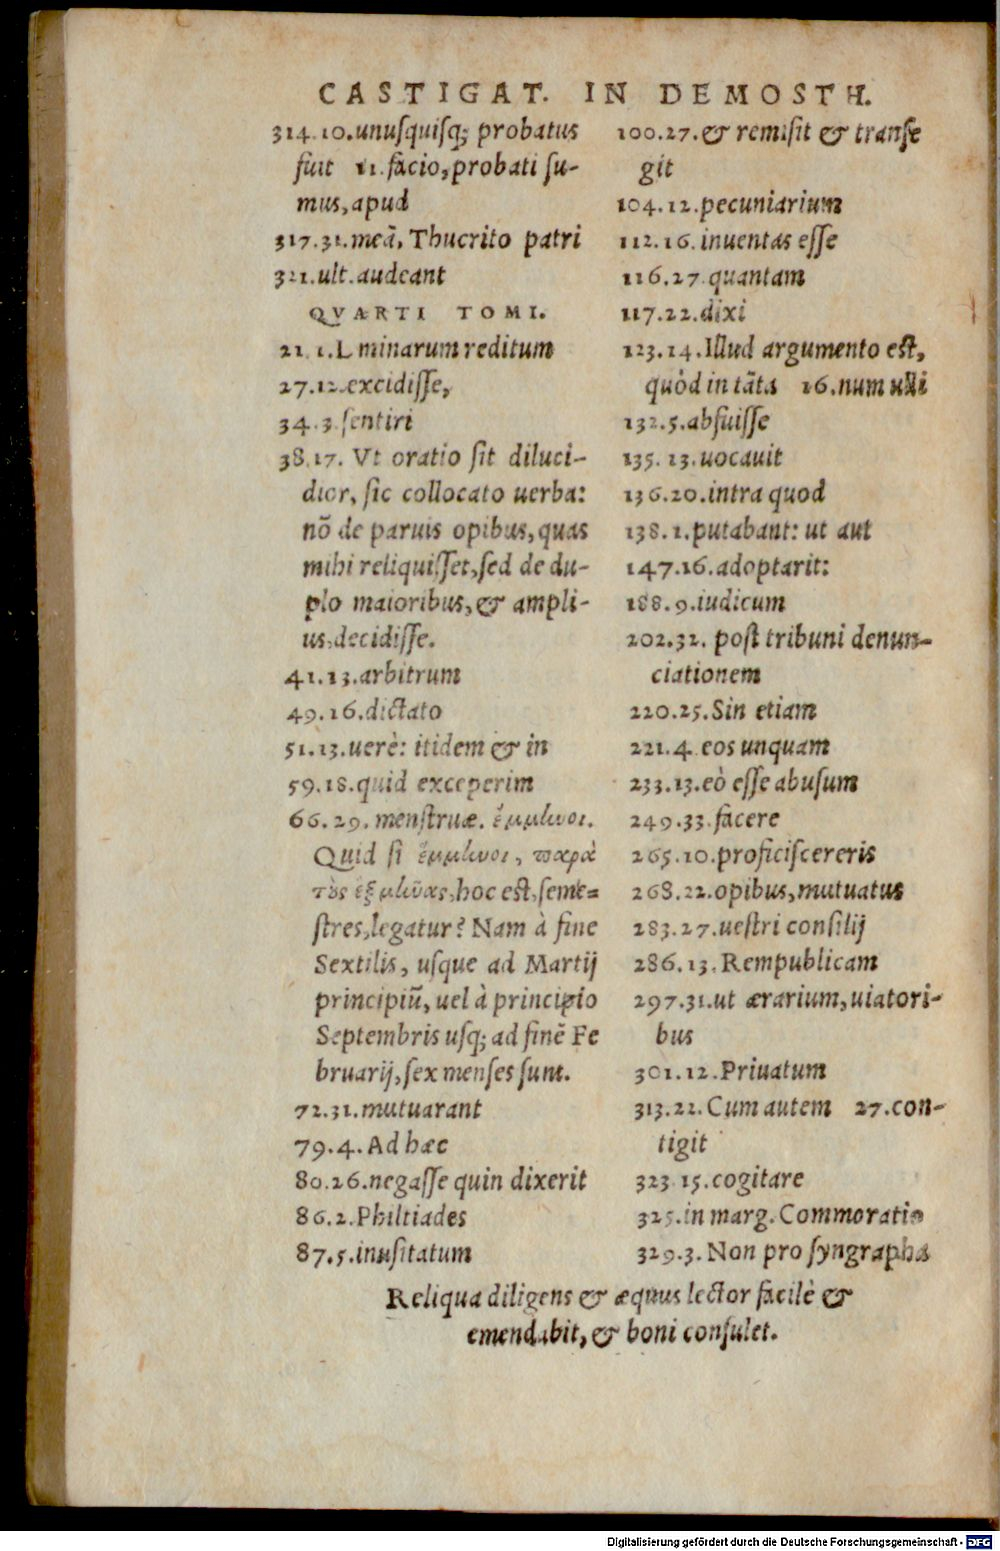 CASTIGAT. IN DEMOSTH.
314.10.unusquisq; probatus
fuit 11.facio,probati su-
mus,apud
317.31.meā, Thucrito patri
321.ult.audeant
QVARTI TOMI.
21.1.L minarum reditum
27.12.excidisse,
34.3.sentiri
38.17. Vt oratio sit diluci-
dior, sic collocato uerba:
nō de paruis opibus,quas
mihi reliquisset,sed de du-
plo maioribus,& ampli-
us,decidisse.
41.13.arbitrum
49.16.dictato
51.13.uerè: itidem & in
59.18.quid exceperim
66.29. menstruæ. ἔμμηνοι.
Quid si ἔμμηνοι, παρὰ
τοὺς ἓξ μῆνας,hoc est,seme-
stres,legatur? Nam à fine
Sextilis, usque ad Martij
principiū, uel à principio
Septembris usq; ad finē Fe
bruarij,sex menses sunt.
72.31.mutuarant
79.4.Ad hæc
80.26.negasse quin dixerit
86.2.Philtiades
87.5.inusitatum
100.27.& remisit & transe
git
104.12.pecuniarium
112.16.inuentas esse
116.27.quantam
117.22.dixi
123.14.Illud argumento est,
quòd in tāta 16.num ulli
132.5.abfuisse
135.13.uocauit
136.20.intra quod
138.1.putabant: ut aut
147.16.adoptarit:
188.9.iudicum
202.32. post tribuni denun-
ciationem
220.25.Sin etiam
221.4.eos unquam
233.13.eò esse abusum
249.33.facere
265.10.proficiscereris
268.22.opibus,mutuatus
283.27.uestri consilij
286.13.Rempublicam
297.31.ut ærarium,uiatori-
bus
301.12.Priuatum
313.22.Cum autem 27.con-
tigit
323.15.cogitare
325.in marg.Commoratio
329.3.Non pro syngrapha
Reliqua diligens & æquus lector facilè &
emendabit, & boni consulet.
Digitalisierung gefördert durch die Deutsche Forschungsgemeinschaft - DFG